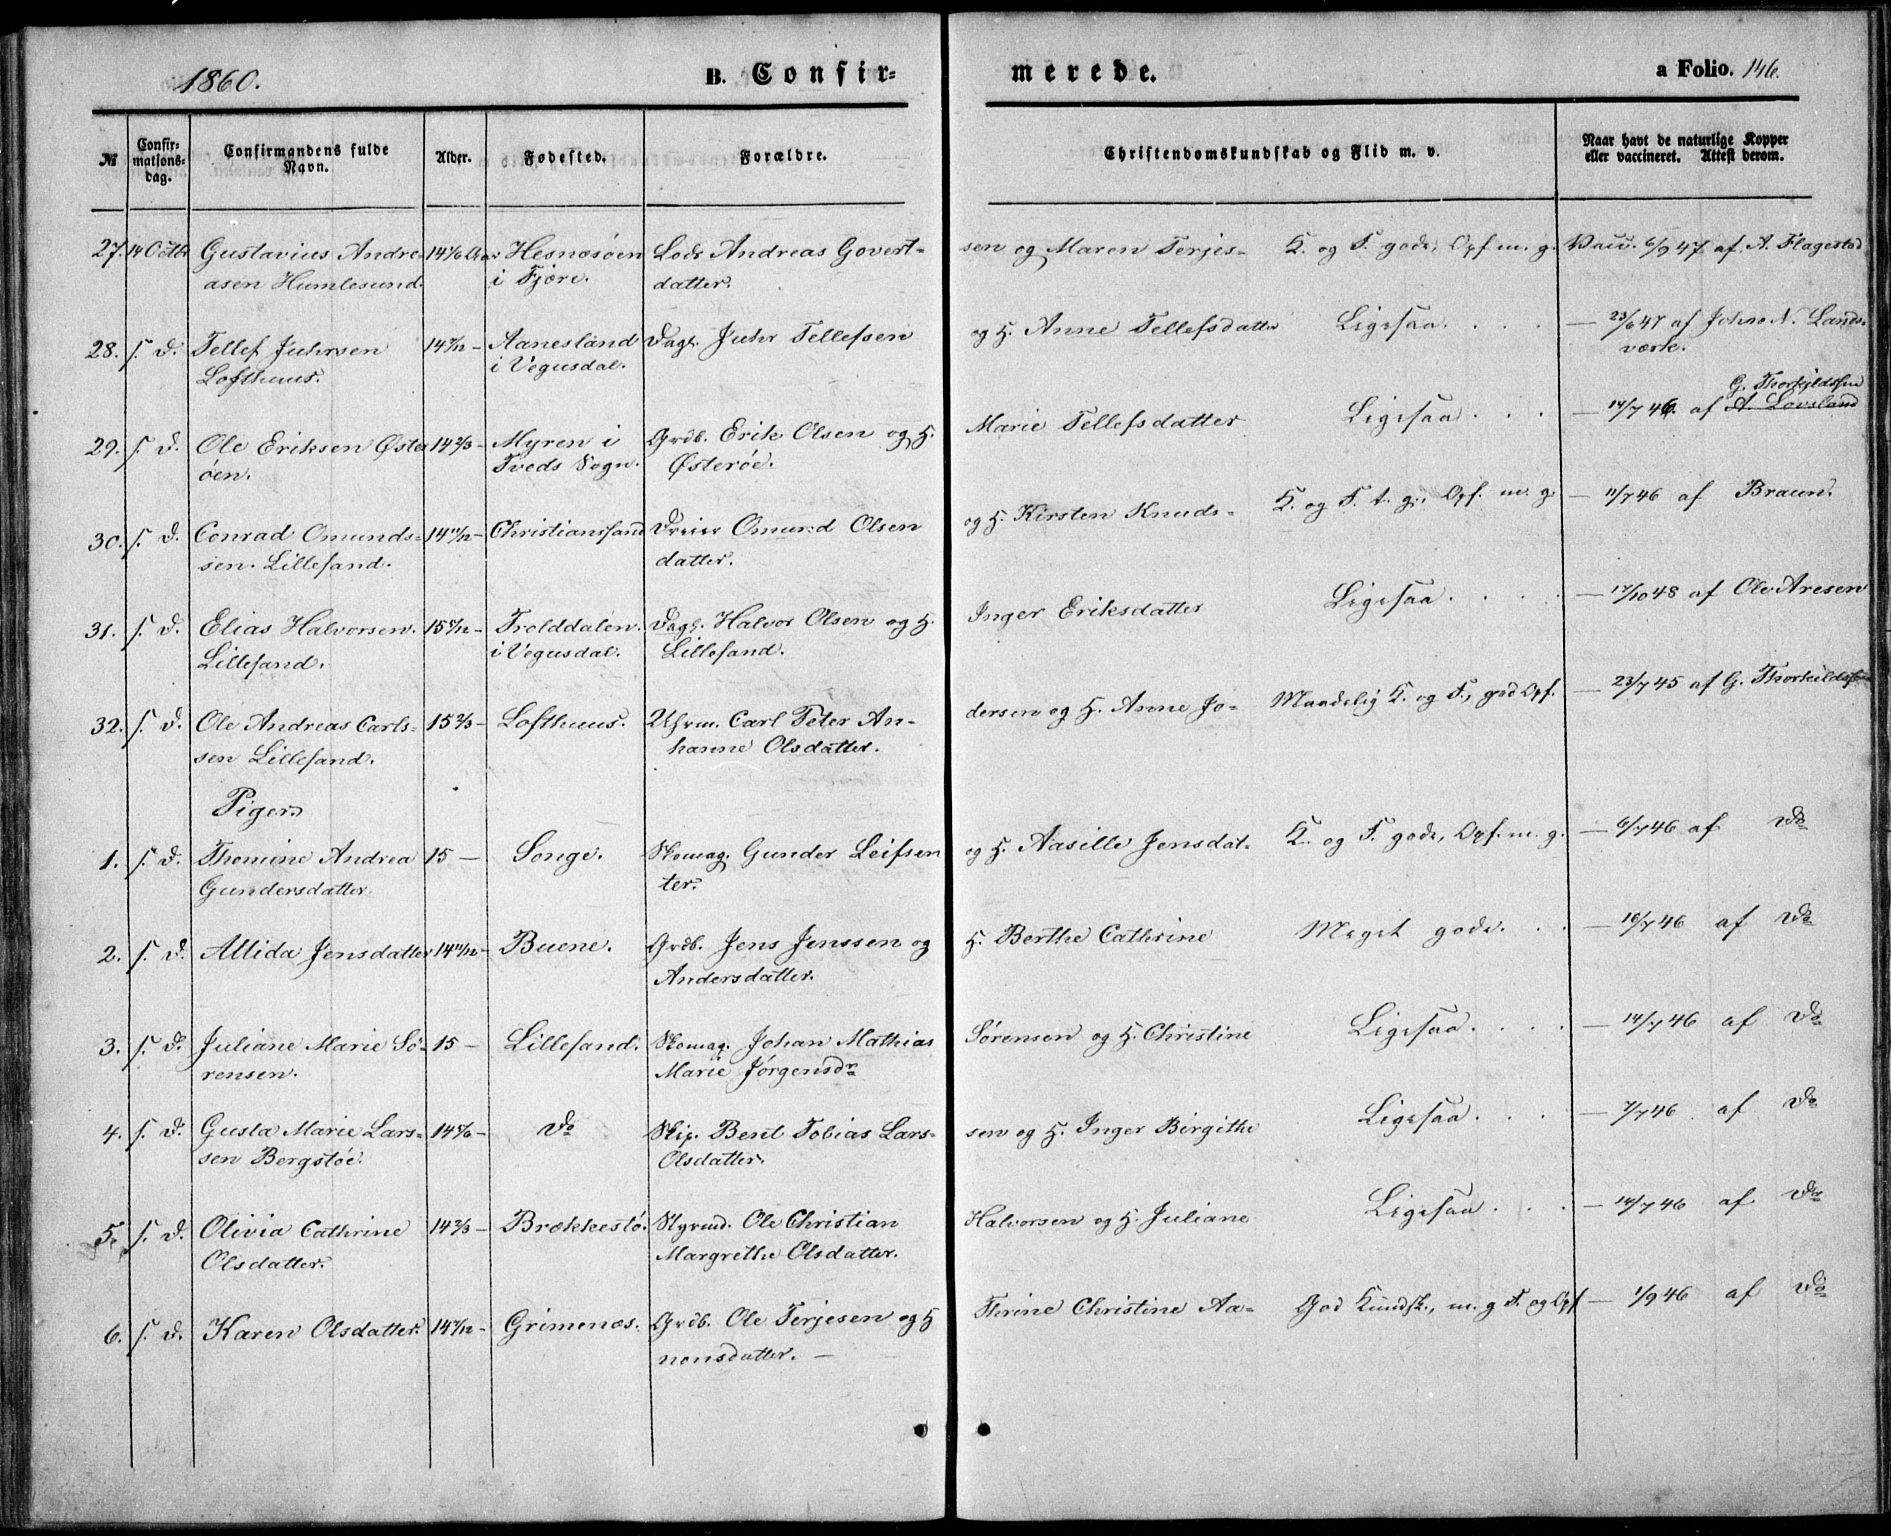 1860. B. Confir= merede. a Folio. 146.
№ Confir=mations=dag. Confirmandens fulde Navn. Alder. Fødested. Forældre. Christendomskundskab og Flid m. v. Naar havt de naturlige Kopper eller vaccineret. Attest derom.
27. 14 Octbr Gustavius Andre- 14 1/6 Aar Hesnæsöen Lods Andreas Govert- sen og Maren Terjes- K. og F. gode, Opf. m. g. Vacc. 6/9 47 af A. Flagestad
asen Humlesund. i Fjære. datter.
28. s. D. Tellef Juhrsen 14 7/12 - Aanesland Dagl. Juhr Tellefsen og H. Anne Tellefsdatter Ligesaa. . . . — 23/6 47 af Johns N. Lands-
Lofthuus. i Vegusdal. værk.
G. Thorkildsen
29. s. D. Ole Eriksen Øster 14 2/3 - Myren i Grdb. Erik Olsen og H. Marie Tellefsdatter Ligesaa . . . — 14/7 46 af A. Lovsland
öen. Tveds Sogn. Østeröe.
30. s. D. Conrad Omunds- 14 11/12 - Christianssand Dreier Omund Olsen og H. Kirsten Knuds- K. og F. t. g., Opf. m. g. — 11/7 46 af Braun.
sen. Lillesand. datter.
31. s. D. Elias Halvorsen. 15 7/12 - Trolddalen. Dagl. Halvor Olsen og H. Inger Eriksdatter Ligesaa . . . — 17/10 48 af Ole Aresen
Lillesand. i Vegusdal. Lillesand.
32. s. D. Ole Andreas Carls- 15 2/3 - Lofthuus. Uhrm. Carl Peter An- dersen og H. Anne Jo- Maadelig K. og F., god Opf. — 23/7 45 af G. Thorkildsen
sen Lillesand. hanne Olsdatter.
Piger
1. s. D. Thomine Andrea 15 — Songe. Skomag. Gunder Leifsen og H. Aasille Jensdat- K. og F. gode, Opf. m. g. — 6/7 46 af Do
Gundersdatter ter.
2. s. D. Allida Jensdatter 14 11/12 - Buene. Grdb. Jens Jenssen og H. Berthe Cathrine Meget gode. . . — 16/7 46 af Do
Andersdatter.
3. s. D. Juliane Marie Sö- 15 - Lillesand. Skomag. Johan Mathias Sörensen og H. Christine Ligesaa. . . . — 14/7 46 af Do
rensen. Marie Jörgensdr
4. s. D. Gusta Marie Lars- 14 5/6 - Do Skip. Bent Tobias Lars- sen og H. Inger Birgithe Ligesaa. . . . — 7/7 46 af Do
sen Bergstöe. Olsdatter.
5. s. D. Olivia Cathrine 14 2/3 - Brækkestö. Styrmd. Ole Christian Halvorsen og H. Juliane Ligesaa . . . — 14/7 46 af Do
Olsdatter. Margrethe Olsdatter.
6. s. D. Karen Olsdatter. 14 7/12 - Grimenæs. Grdb. Ole Terjesen og H Thrine Christine Aa- God Kundsk., m. g F. og Opf — 1/9 46 af Do
nonsdatter. —